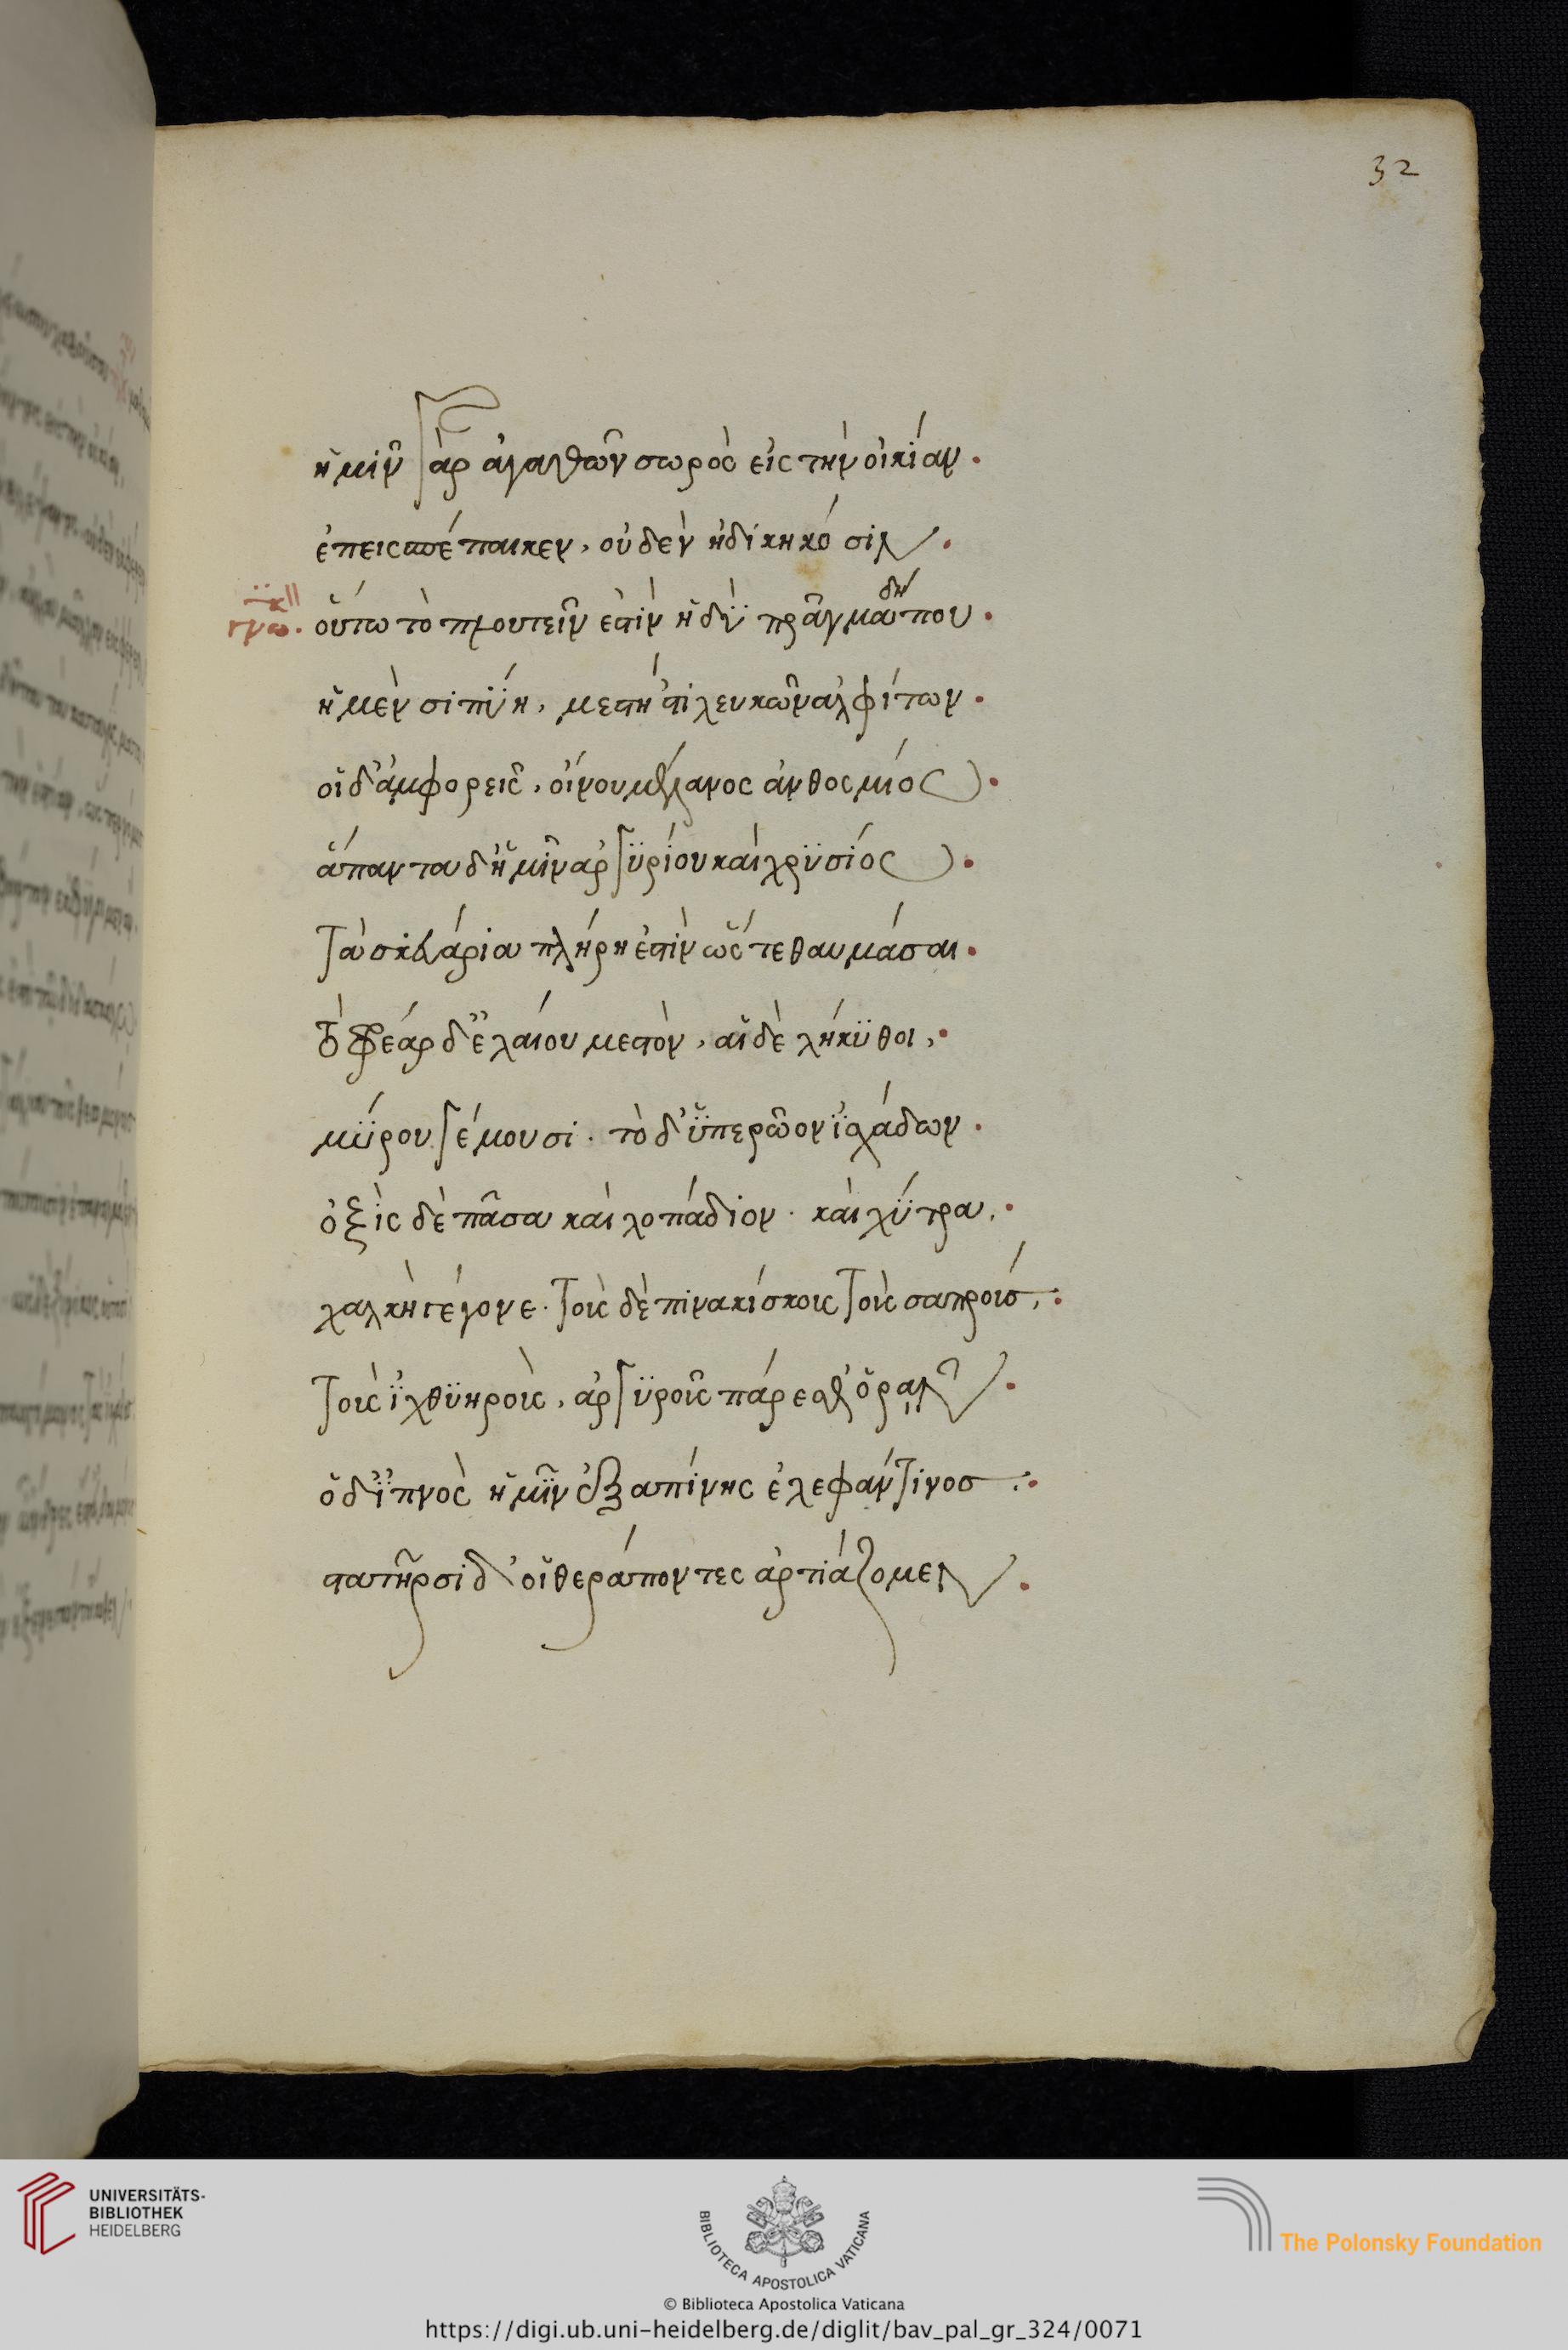 32
ἡμῖν γὰρ ἀγαθῶν σωρὸς εἰς τὴν οἰκίαν.
ἐπεισπέπαικεν, οὐδὲν ἠδικηκόσιν.
οὕτω τὸ πλουτεῖν ἐστὶν ἡδὺ πρᾶγμα δή που.
ἡ μὲν σιπύη, μεστή 'στι λευκῶν ἀλφίτων.
οἱ δ' ἀμφορεῖς, οἴνου μέλανος ἀνθοσμίου.
ἅπαντα δ' ἡμῖν ἀργυρίου καὶ χρυσίου.
τὰ σκευάρια πλήρη ἐστὶν ὥστε θαυμάσαι.
τὸ φρέαρ δ' ἐλαίου μεστόν, αἱ δὲ λήκυθοι,.
μύρου γέμουσι. τὸ δ' ὑπερῷον ἰσχάδων.
ὀξὶς δὲ πᾶσα καὶ λοπάδιον. καὶ χύτρα,.
χαλκῆ γέγονε. τοὺς δὲ πινακίσκους τοὺς σαπρούς,.
τοὺς ἰχθυηρούς, ἀργυροῦς πάρεσθ' ὁρᾶν.
ὁ δ' ἰπνὸς ἡμῖν ἐξαπίνης ἐλεφάντινος.
στατῆρσι δ' οἱ θεράποντες ἀρτιάζομεν.
UNIVERSITÄTS-
BIBLIOTHEK
HEIDELBERG
BIBLIOTECA APOSTOLICA VATICANA
The Polonsky Foundation
© Biblioteca Apostolica Vaticana
https://digi.ub.uni-heidelberg.de/diglit/bav_pal_gr_324/0071